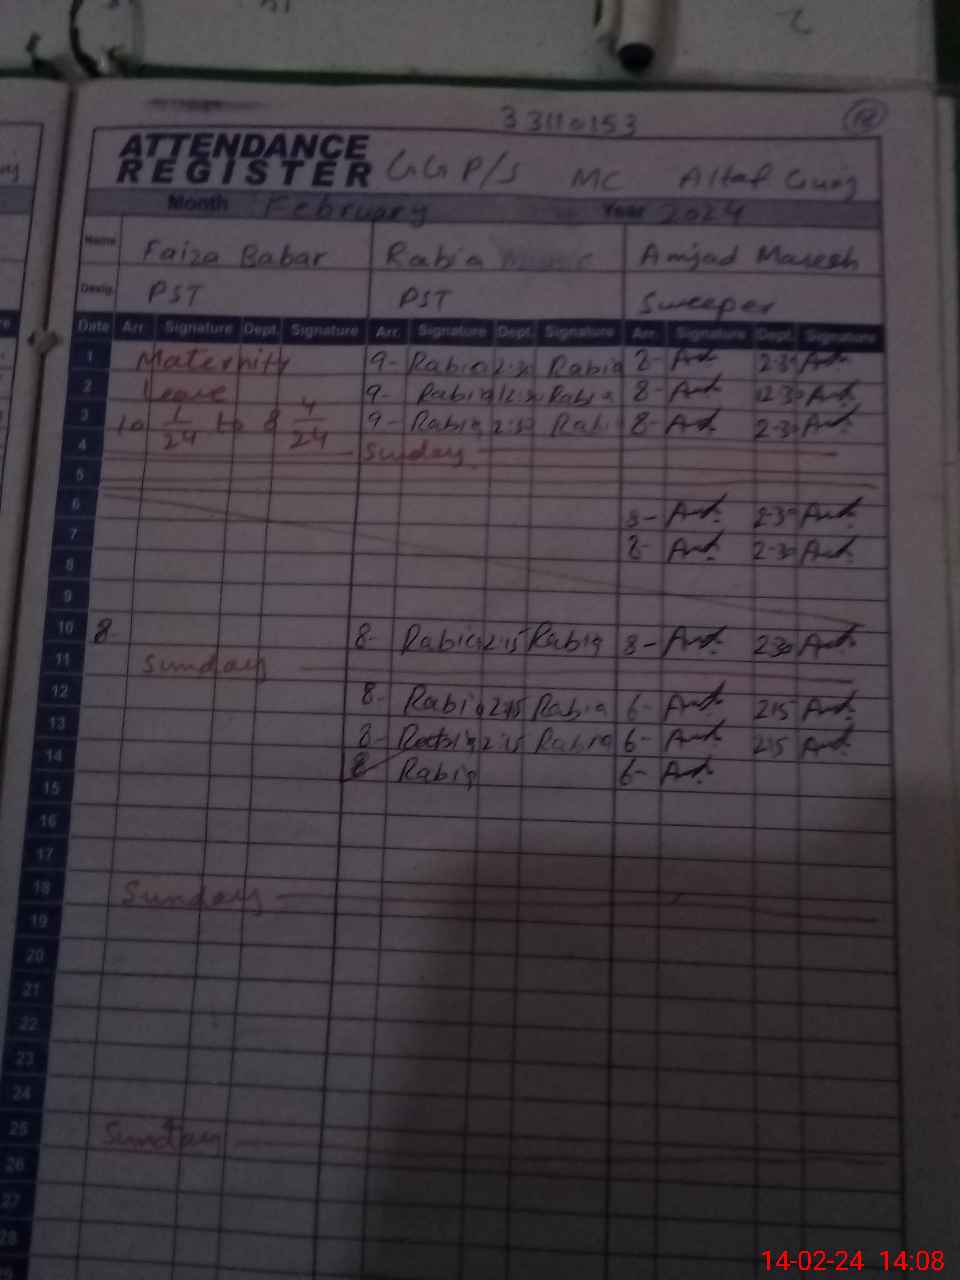 33110153
ATTENDANCE REGISTER GGP/S MC Altaf Gunj
Month February Year 2024
Name Faiza Babar Rabia Amjad Maseeh
Desig. PST PST Sweeper
Date Arr. Signature Dept. Signature Arr. Signature Dept. Signature Arr. Signature Dept. Signature
1 Maternity 9- Rabia 2:30 Rabia 8- 2-30
2 Leave 9- Rabia 12:30 Rabia 8- 12-30
3 10 1/24 to 8 4/24 9- Rabia 2:30 Rabia 8- 2-30
4 Sunday
5
6 8- 2-30
7 8- 2-30
8
9
10 8 8- Rabia 2:15 Rabia 8- 230
11 Sunday
12 8- Rabia 2:15 Rabia 6- 215
13 8- Rabia 2:15 Rabia 6- 215
14 8 Rabia 6-
15
16
17
18 Sunday
19
20
21
22
23
24
25 Sunday
26
27
28
14-02-24 14:08